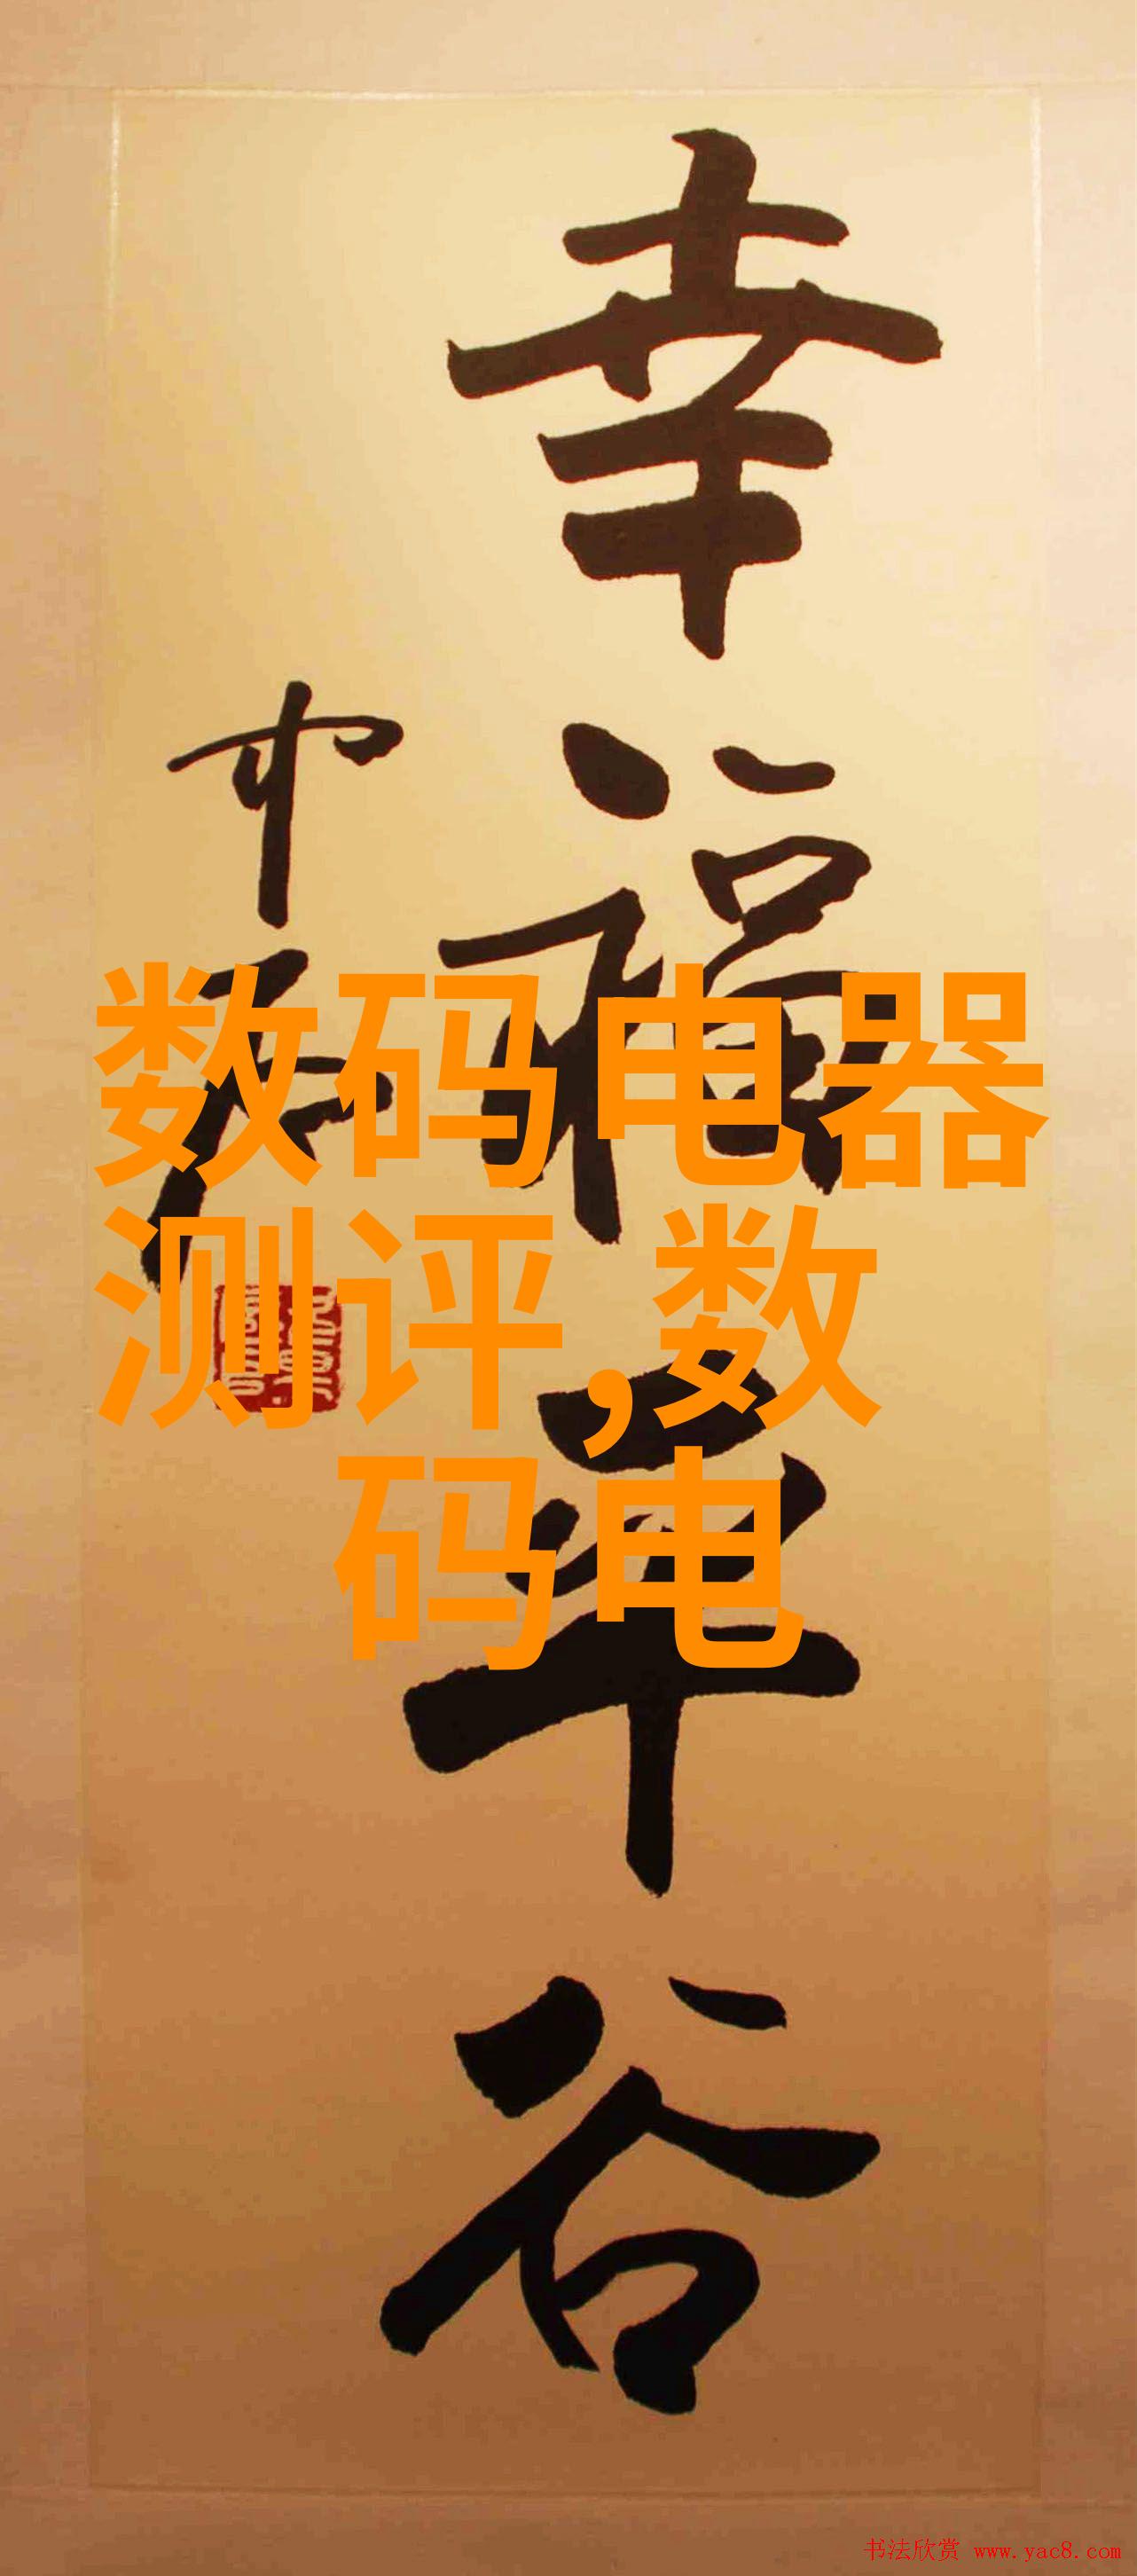 幸福平谷
中石
数码电器
测评,数
码电
书法欣赏 www.yac8.com